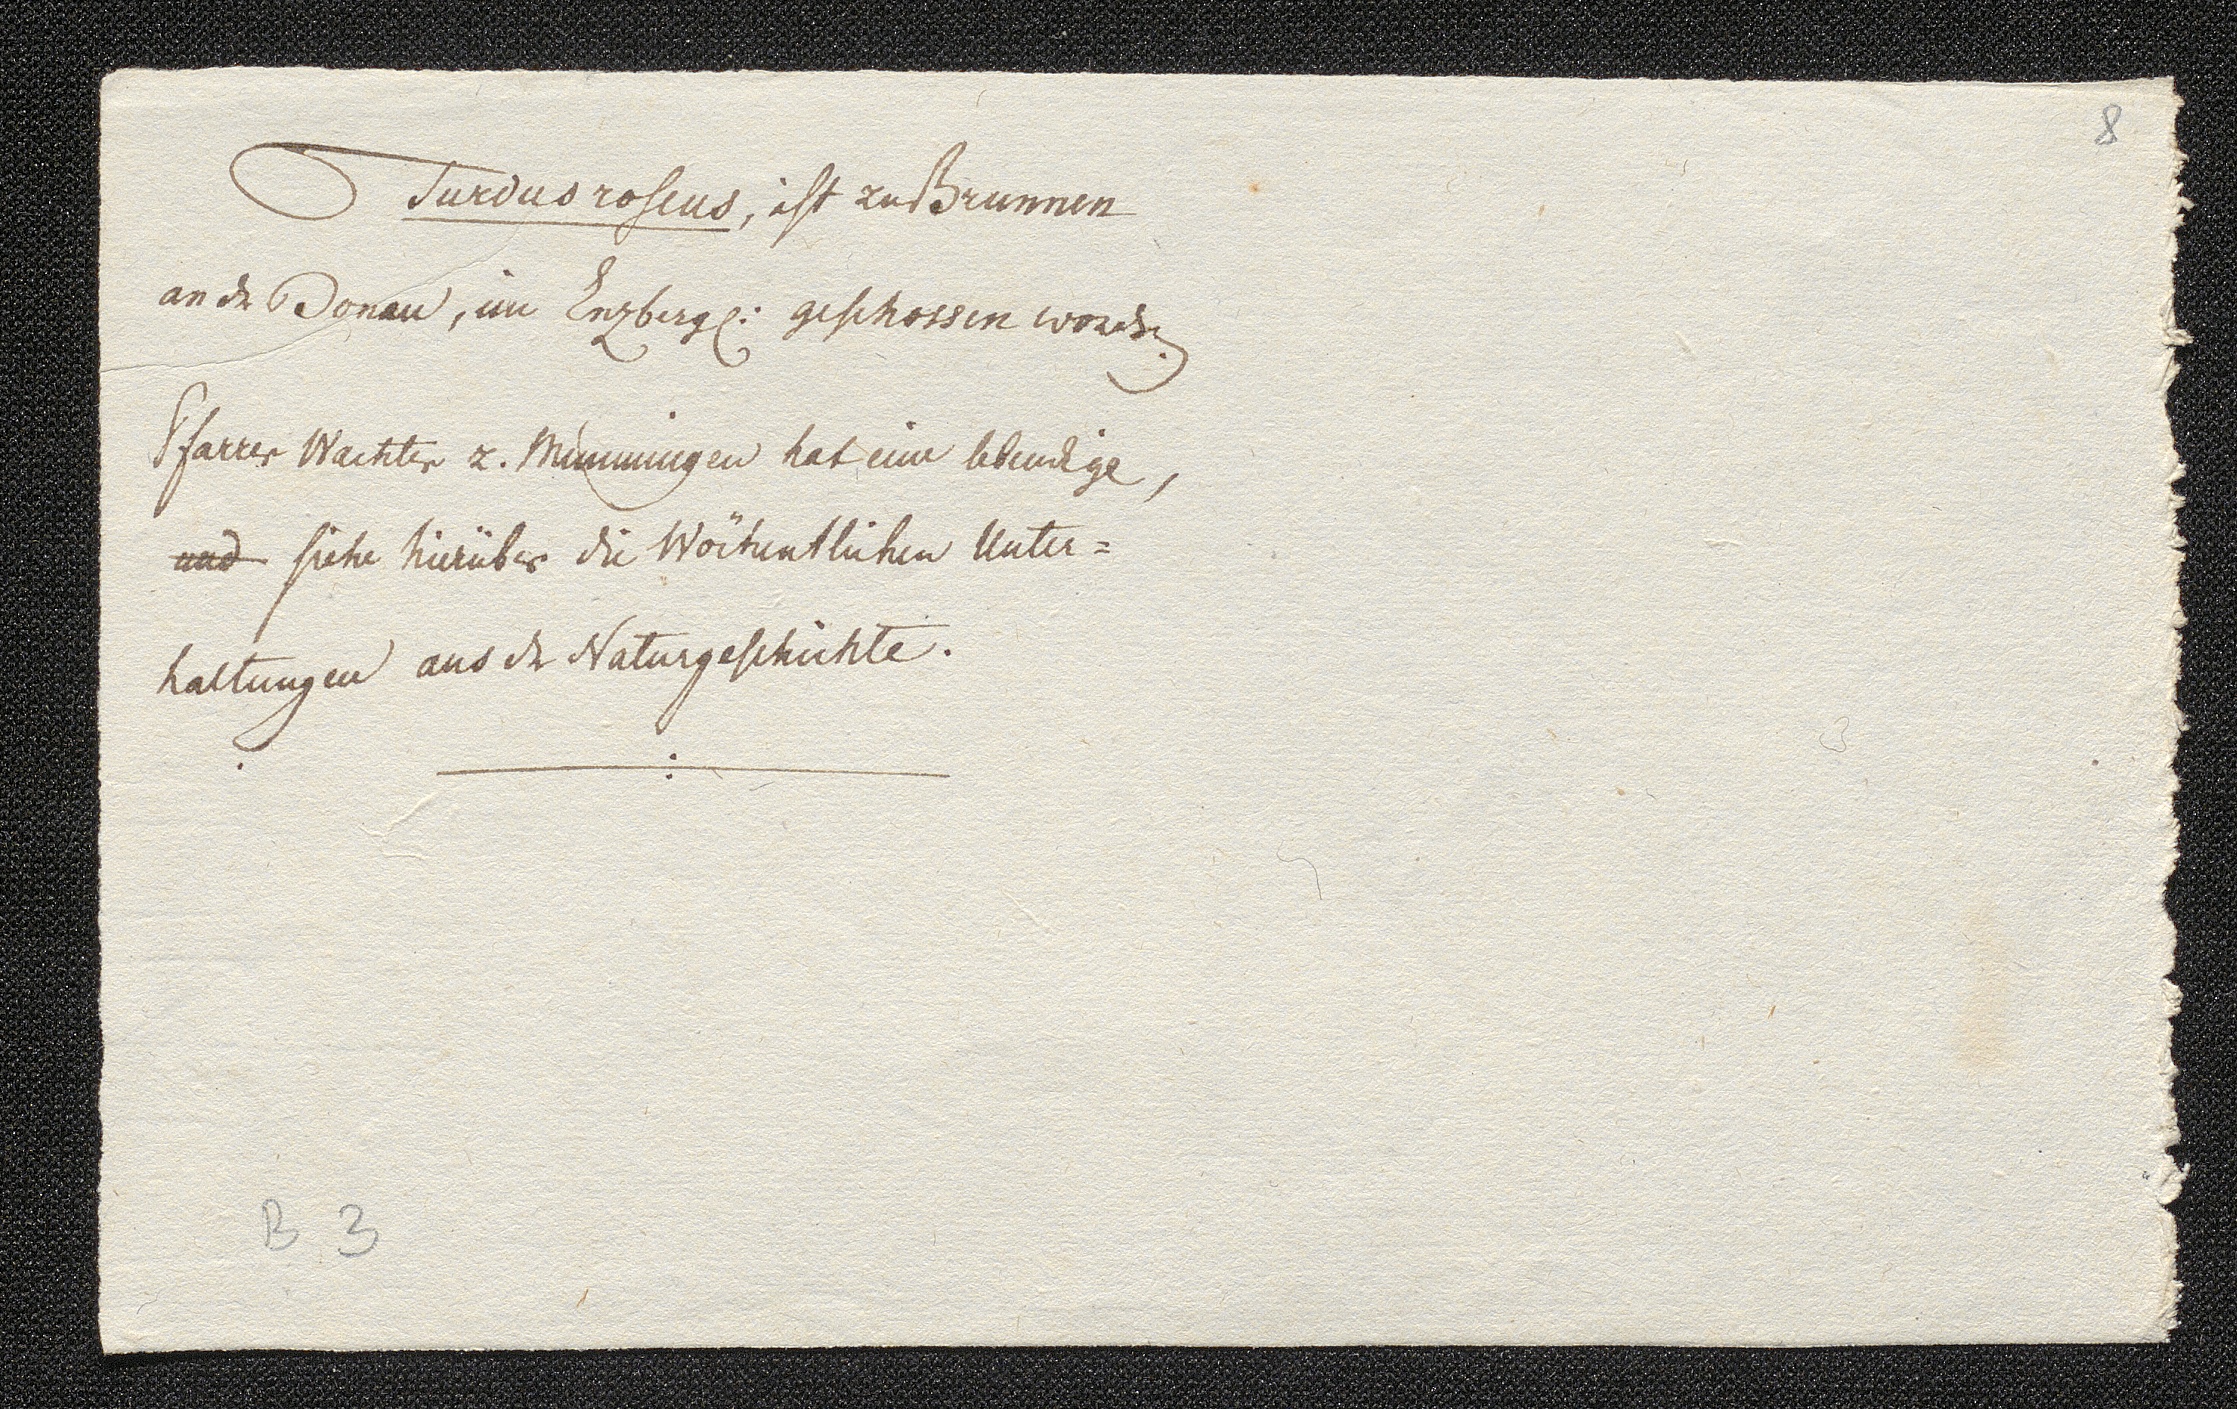 8
Turdus roseus, ist zu Brunnen
an der Donau, im Enzberg: geschossen worden.
Pfarrer Wachter z. hat eine lebendige,
und siehe hierüber die Wöchentlichen Unter=
haltungen aus der Naturgeschichte.
B 3